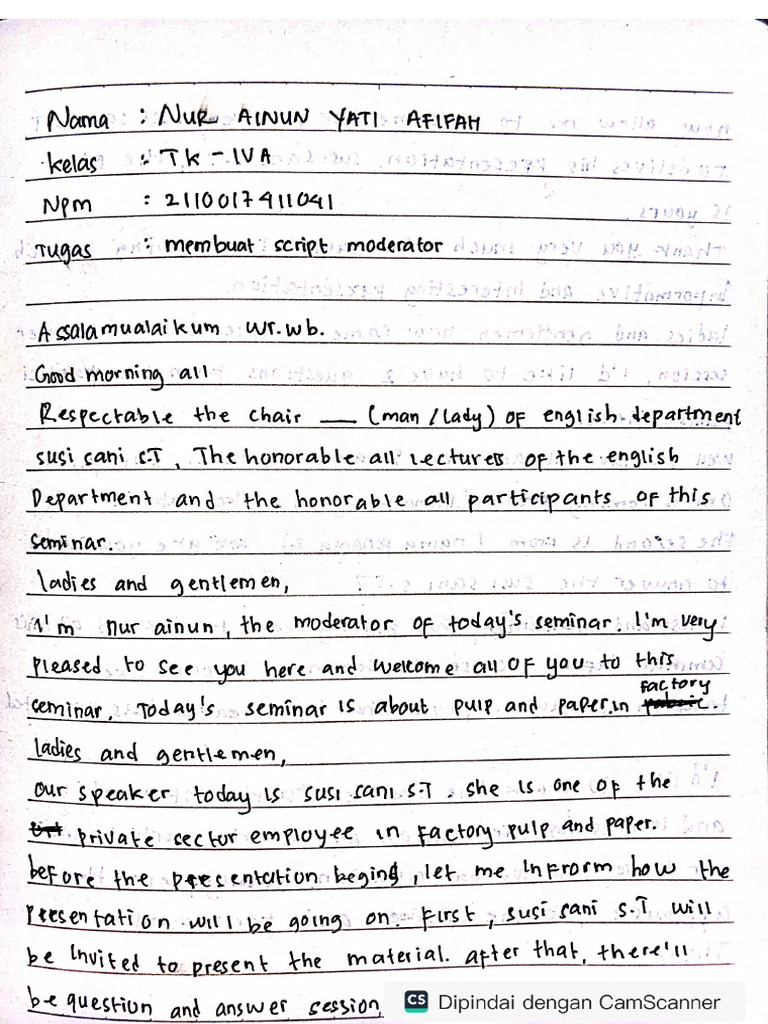 Nama : NUR AINUN YATI AFIFAH
kelas : TK - IVA
Npm : 2110017411041
Tugas : membuat script moderator
Assalamualaikum wr.wb.
Good morning all
Respectable the chair ___ (man / lady) of english department
susi sani S.T, The honorable all lectures of the english
Department and the honorable all participants of this
seminar.
ladies and gentlemen,
I'm nur ainun, the moderator of today's seminar. I'm very
pleased to see you here and welcome all of you to this
seminar. Today's seminar is about pulp and paper in factory.
ladies and gentlemen,
our speaker today is susi sani S.T. she is one of the
private sector employee in factory pulp and paper.
before the presentation begins, let me infrorm how the
presentation will be going on. first, susi sani S.T will
be invited to present the material. after that, there'll
be question and answer session
CS Dipindai dengan CamScanner